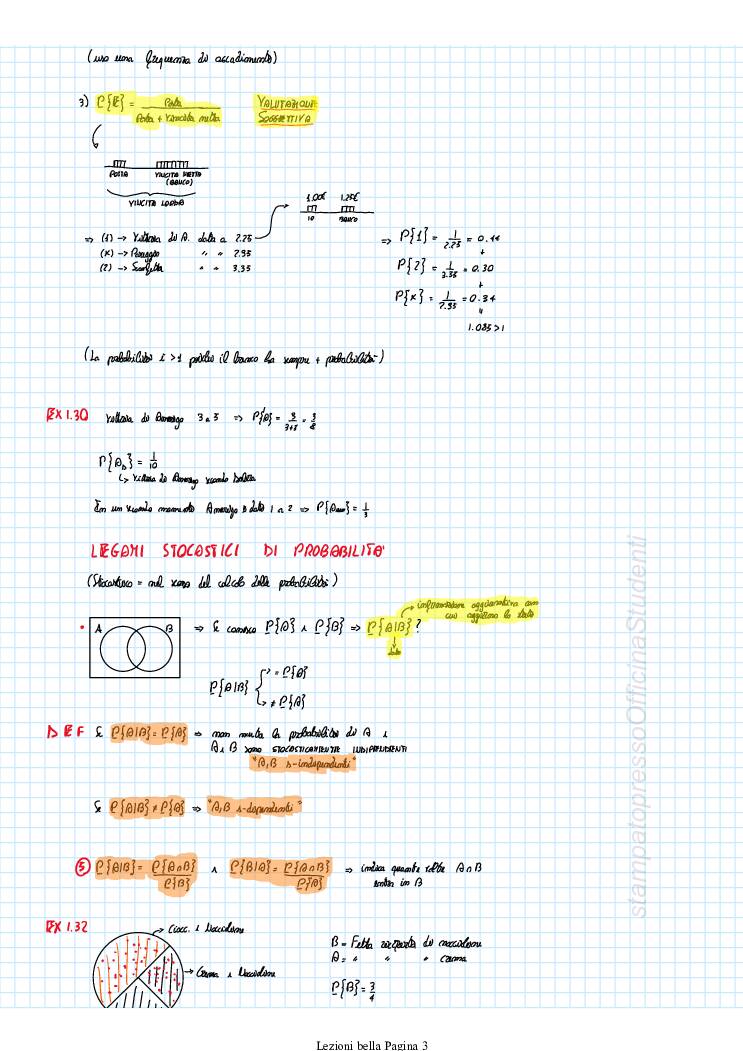 (uso una frequenza di accadimento)
3) P{E} = Posta / Posta + Vincita netta
VALUTAZIONE
SOGGETTIVA
POSTA
VINCITA NETTA
(BANCO)
VINCITA LORDA
1.00€ 1.25€
IO BANCO
=> (1) → Vittoria di A. data a 2.25
(X) → Pareggio " " 2.95
(2) → Sconfitta " " 3.35
=> P{1} = 1/2.25 = 0.44
+
P{2} = 1/3.35 = 0.30
+
P{X} = 1/2.95 = 0.34
"
1.085 > 1
(La probabilità è >1 perché il banco ha sempre + probabilità)
EX 1.30 Vittoria di 3 a 5 => P{A} = 3/3+5 = 3/8
P{A_b} = 1/10
↳ vittoria di secondo
In un secondo momento è dato 1 a 2 => P{A} = 1/3
LEGAMI STOCASTICI DI PROBABILITA'
(Stocastico = nel senso del calcolo delle probabilità)
A B
=> Se conosco P{A} e P{B} => P{A|B}?
informazione aggiuntiva con
cui aggiorno lo stato
dato
P{A|B} = P{A}
≠ P{A}
DEF Se P{A|B} = P{A} => non muta la probabilità di A e
A e B sono STOCASTICAMENTE INDIPENDENTI
"A,B s-indipendenti"
Se P{A|B} ≠ P{A} => "A,B s-dipendenti"
5 P{A|B} = P{A∩B}/P{B} e P{B|A} = P{A∩B}/P{A} => indica quante volte A∩B
entra in B
EX 1.32
→ Ciocc. e Nocciolone
→ Crema e Nocciolone
B = Fetta ricoperta di nocciolone
A = " " " crema
P{B} = 3/4
stampatopressoOfficinaStudenti
Lezioni bella Pagina 3